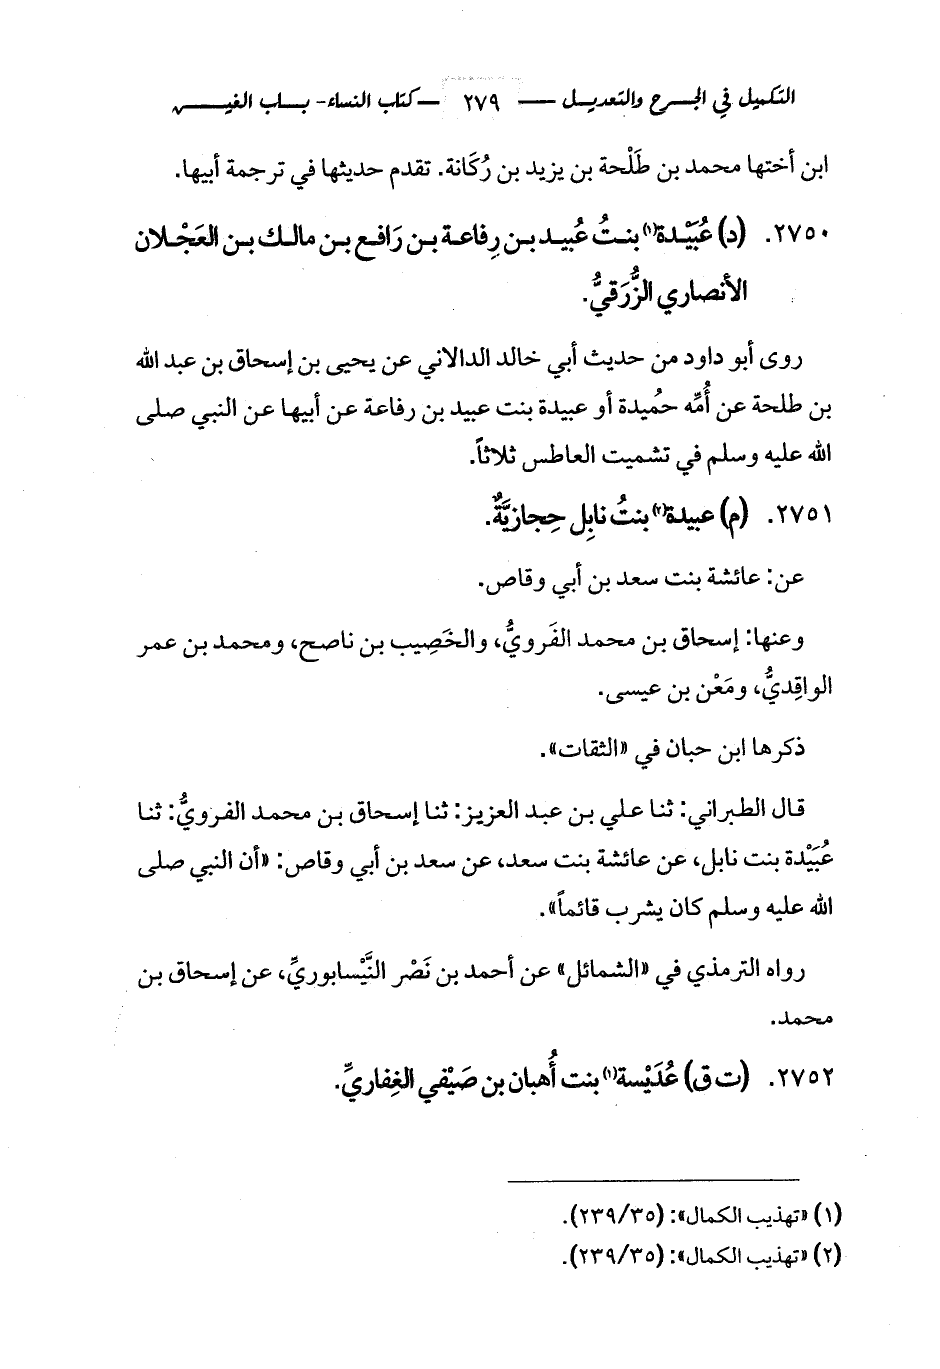 التكميل في الجـــرح والتعديــل ـــــ ٢٧٩ ــ كتاب النساء- بــاب الغيـــــن
ابن أختها محمد بن طَلْحة بن يزيد بن رُكَانة. تقدم حديثها في ترجمة أبيها.
٢٧٥٠. (د) عُبَيْدة(١) بنتُ عُبيد بـن رِفاعة بـن رَافـع بـن مالـك بـن العَجْـلان
الأنصاري الزُّرَقيُّ.
روى أبو داود من حديث أبي خالد الدالاني عن يحيى بن إسحاق بن عبد الله
بن طلحة عن أُمِّه حُميدة أو عبيدة بنت عبيد بن رفاعة عن أبيها عن النبي صلى
الله عليه وسلم في تشميت العاطس ثلاثاً.
٢٧٥١. (م) عبيدة(٢) بنتُ نابِل حِجازيَّةٌ.
عن: عائشة بنت سعد بن أبي وقاص.
وعنها: إسحاق بن محمد الفَرويُّ، والخَصِيب بن ناصح، ومحمد بن عمر
الواقِديُّ، ومَعْن بن عيسى.
ذكرها ابن حبان في «الثقات».
قال الطبراني: ثنا علي بن عبد العزيز: ثنا إسحاق بن محمد الفرويُّ: ثنا
عُبَيْدة بنت نابل، عن عائشة بنت سعد، عن سعد بن أبي وقاص: «أن النبي صلى
الله عليه وسلم كان يشرب قائماً».
رواه الترمذي في «الشمائل» عن أحمد بن نَصْر النَّيْسابوريِّ، عن إسحاق بن
محمد.
٢٧٥٢. (ت ق) عُدَيْسة(١) بنت أُهبان بن صَيْفي الغِفاريِّ.
(١) «تهذيب الكمال»: (٢٣٩/٣٥).
(٢) «تهذيب الكمال»: (٢٣٩/٣٥).